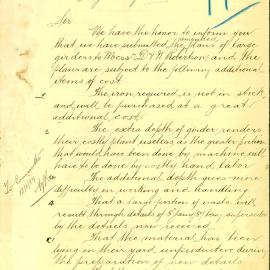 Sir
We have the honor to inform you
that we have submitted the amended plans of large
girders to Messrs D & W Robertson and the
plans are subject to the following additional
items of cost.
The iron required is not in stock
and will be purchased at a great
additional cost.
The extra depth of girder renders
their costly plant useless as the greater portion
that would have been done by machine will
have to be done by costly hand labor
The additional depth gives more
difficulty in working and handling
That a large portion of waste will
result through details of superseded
by the details now received
That the material has been
lying in their yard unproductive during
the preparation of new details